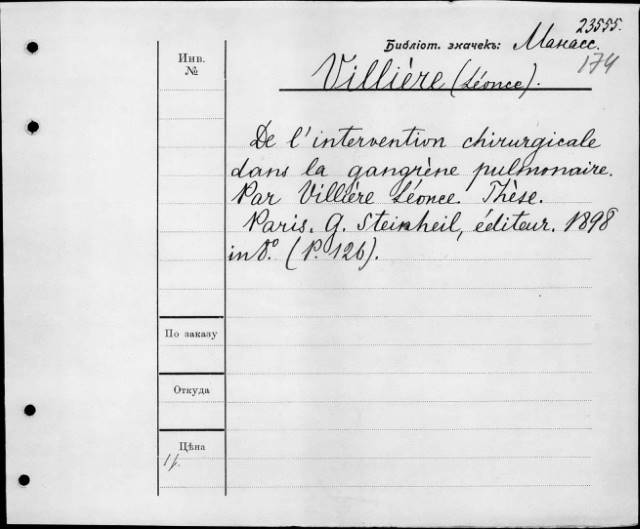 23555.
Библіот. значекъ: Манасс.
174
Инв.
№
Villière (Léonce).
De l'intervention chirurgicale
dans la gangrène pulmonaire.
Par Villière Léonce. Thèse.
Paris. G. Steinheil, éditeur. 1898
in 8º. (P. 126).
По заказу
Откуда
Цѣна
1 р.